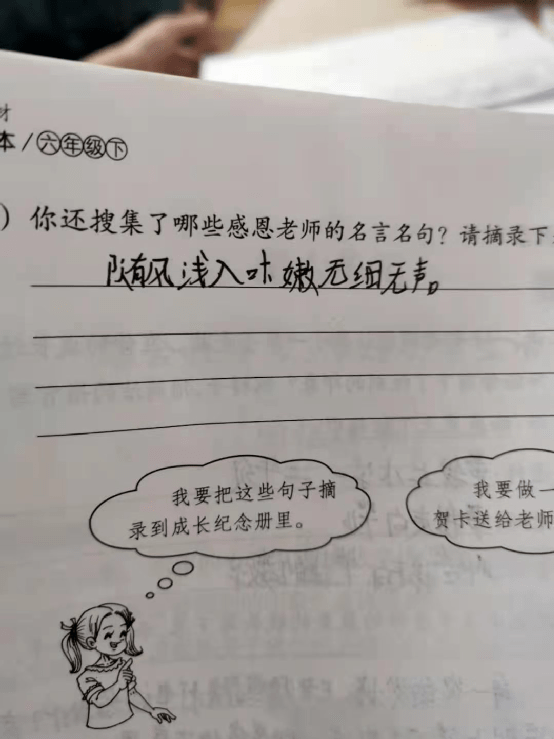 材
本/六年级下
)你还搜集了哪些感恩老师的名言名句?请摘录下
随风浅入咔嫩无细无声。
我要把这些句子摘
录到成长纪念册里。
我要做一
贺卡送给老师